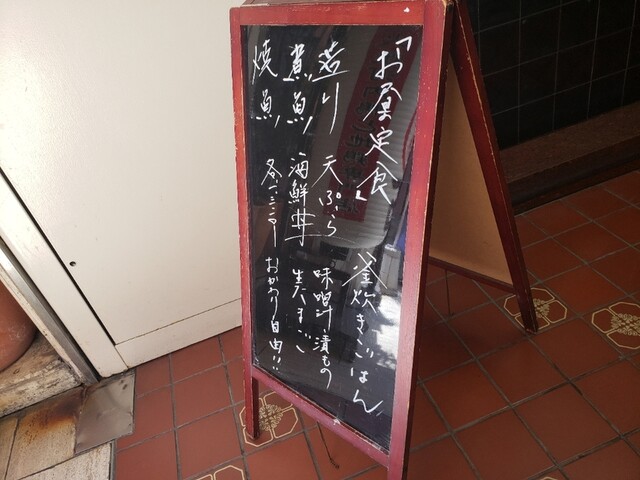 「お昼定食」 釜炊きごはん
造り 天ぷら 味噌汁、漬もの
煮魚 海鮮丼 生たまご
焼魚 おかわり自由!!